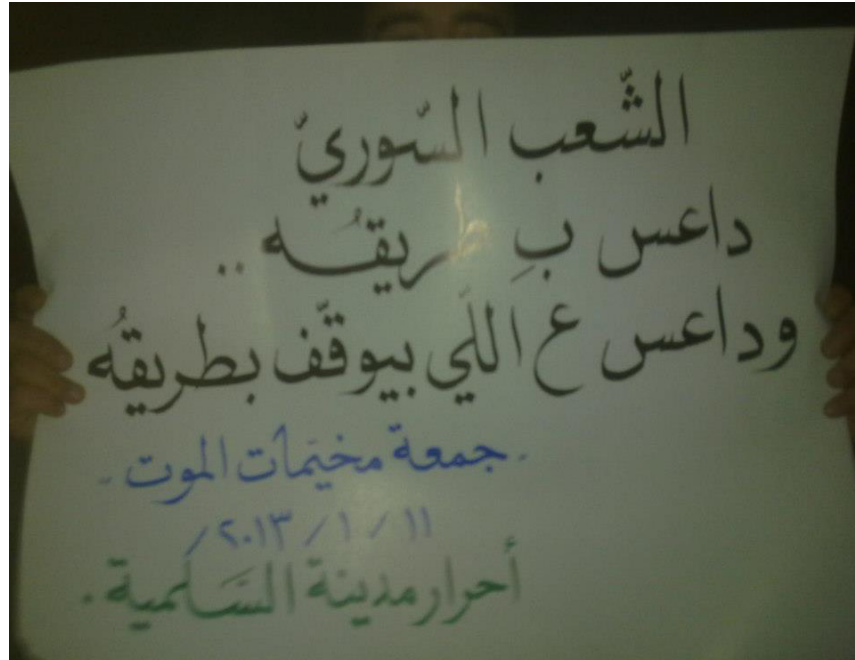 الشّعب السّوريّ
داعس بِ طريقُه ..
وداعس ع اللّي بيوقّف بطريقُه
- جمعة مخيّمات الموت -
/ ١١ / ١ / ٢٠١٣
أحرار مدينة السَّلمية .